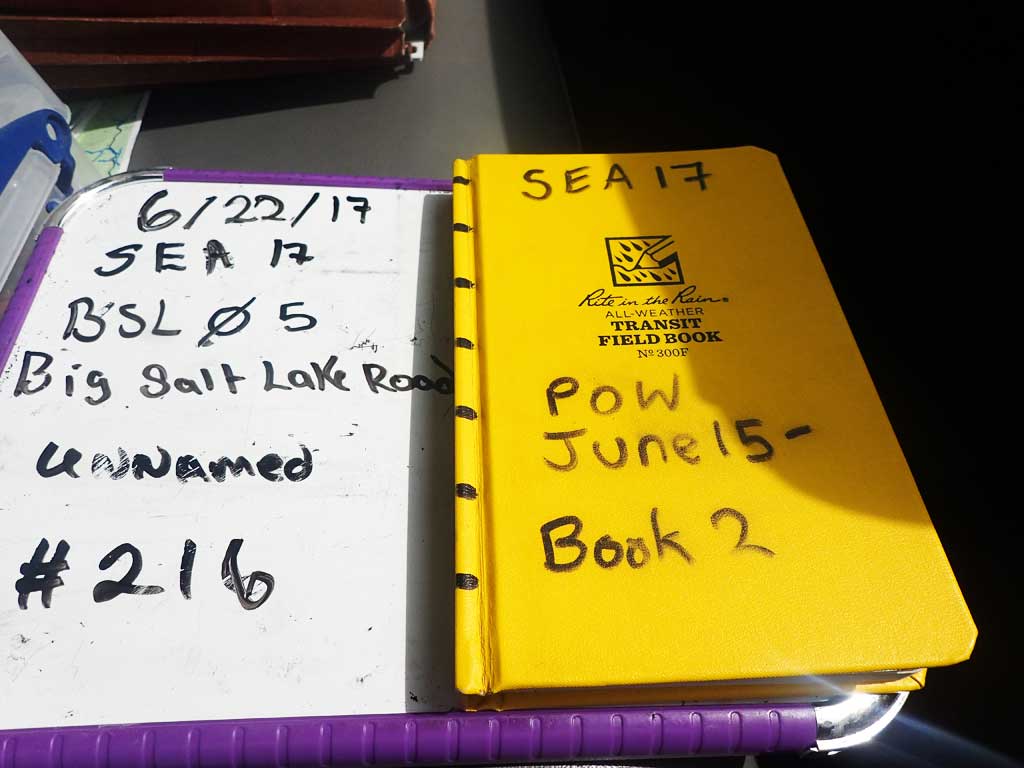 6/22/17
SEA 17
BSL Ø 5
Big Salt Lake Road
unnamed
#216
SEA 17
Rite in the Rain®
ALL-WEATHER
TRANSIT
FIELD BOOK
Nº 300F
POW
June 15-
Book 2